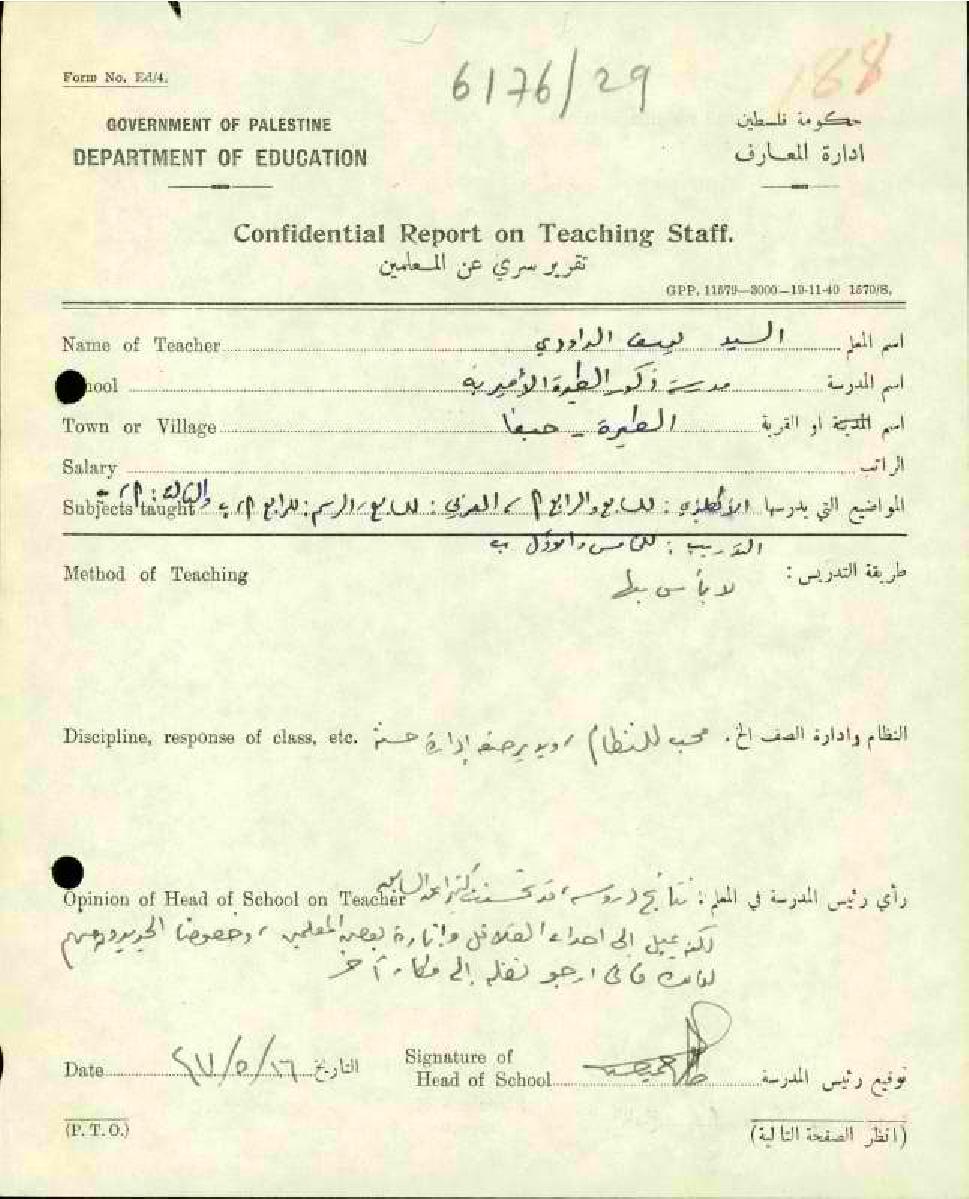 6176/29
188
Form No. Ed/4.
GOVERNMENT OF PALESTINE
حكومة فلسطين
DEPARTMENT OF EDUCATION
ادارة المعارف
Confidential Report on Teaching Staff.
تقرير سري عن المعلمين
GPP. 11579—3000—19-11-40 1570/S.
Name of Teacher السيد يوسف الداودي اسم المعلم
hool مدرسة ذكور الطيرة الأميرية اسم المدرسة
Town or Village الطيرة - حيفا اسم المدينة او القرية
Salary الراتب
Subjects taught المواضيع التي يدرسها الأنكليزي : للسابع والرابع العربي : للسابع، الرسم : للرابع والثالث
التدريب : للخامس والأول ب
Method of Teaching طريقة التدريس : لا بأس بها
Discipline, response of class, etc. النظام وادارة الصف الخ. محب للنظام ، ويدير صفه إدارة حسنة
Opinion of Head of School on Teacher رأي رئيس المدرسة في المعلم : نتائج دروسه ، قد تحسنت
لكنه يميل إلى احداث القلاقل وإثارة بعض المعلمين ، وخصوصا الجديدين منهم
لذلك فاني ارجو نقله إلى مكان آخر
Date ٤٧/٥/١٦ التاريخ
Signature of
Head of School توقيع رئيس المدرسة
(P. T. O.) (انظر الصفحة التالية)